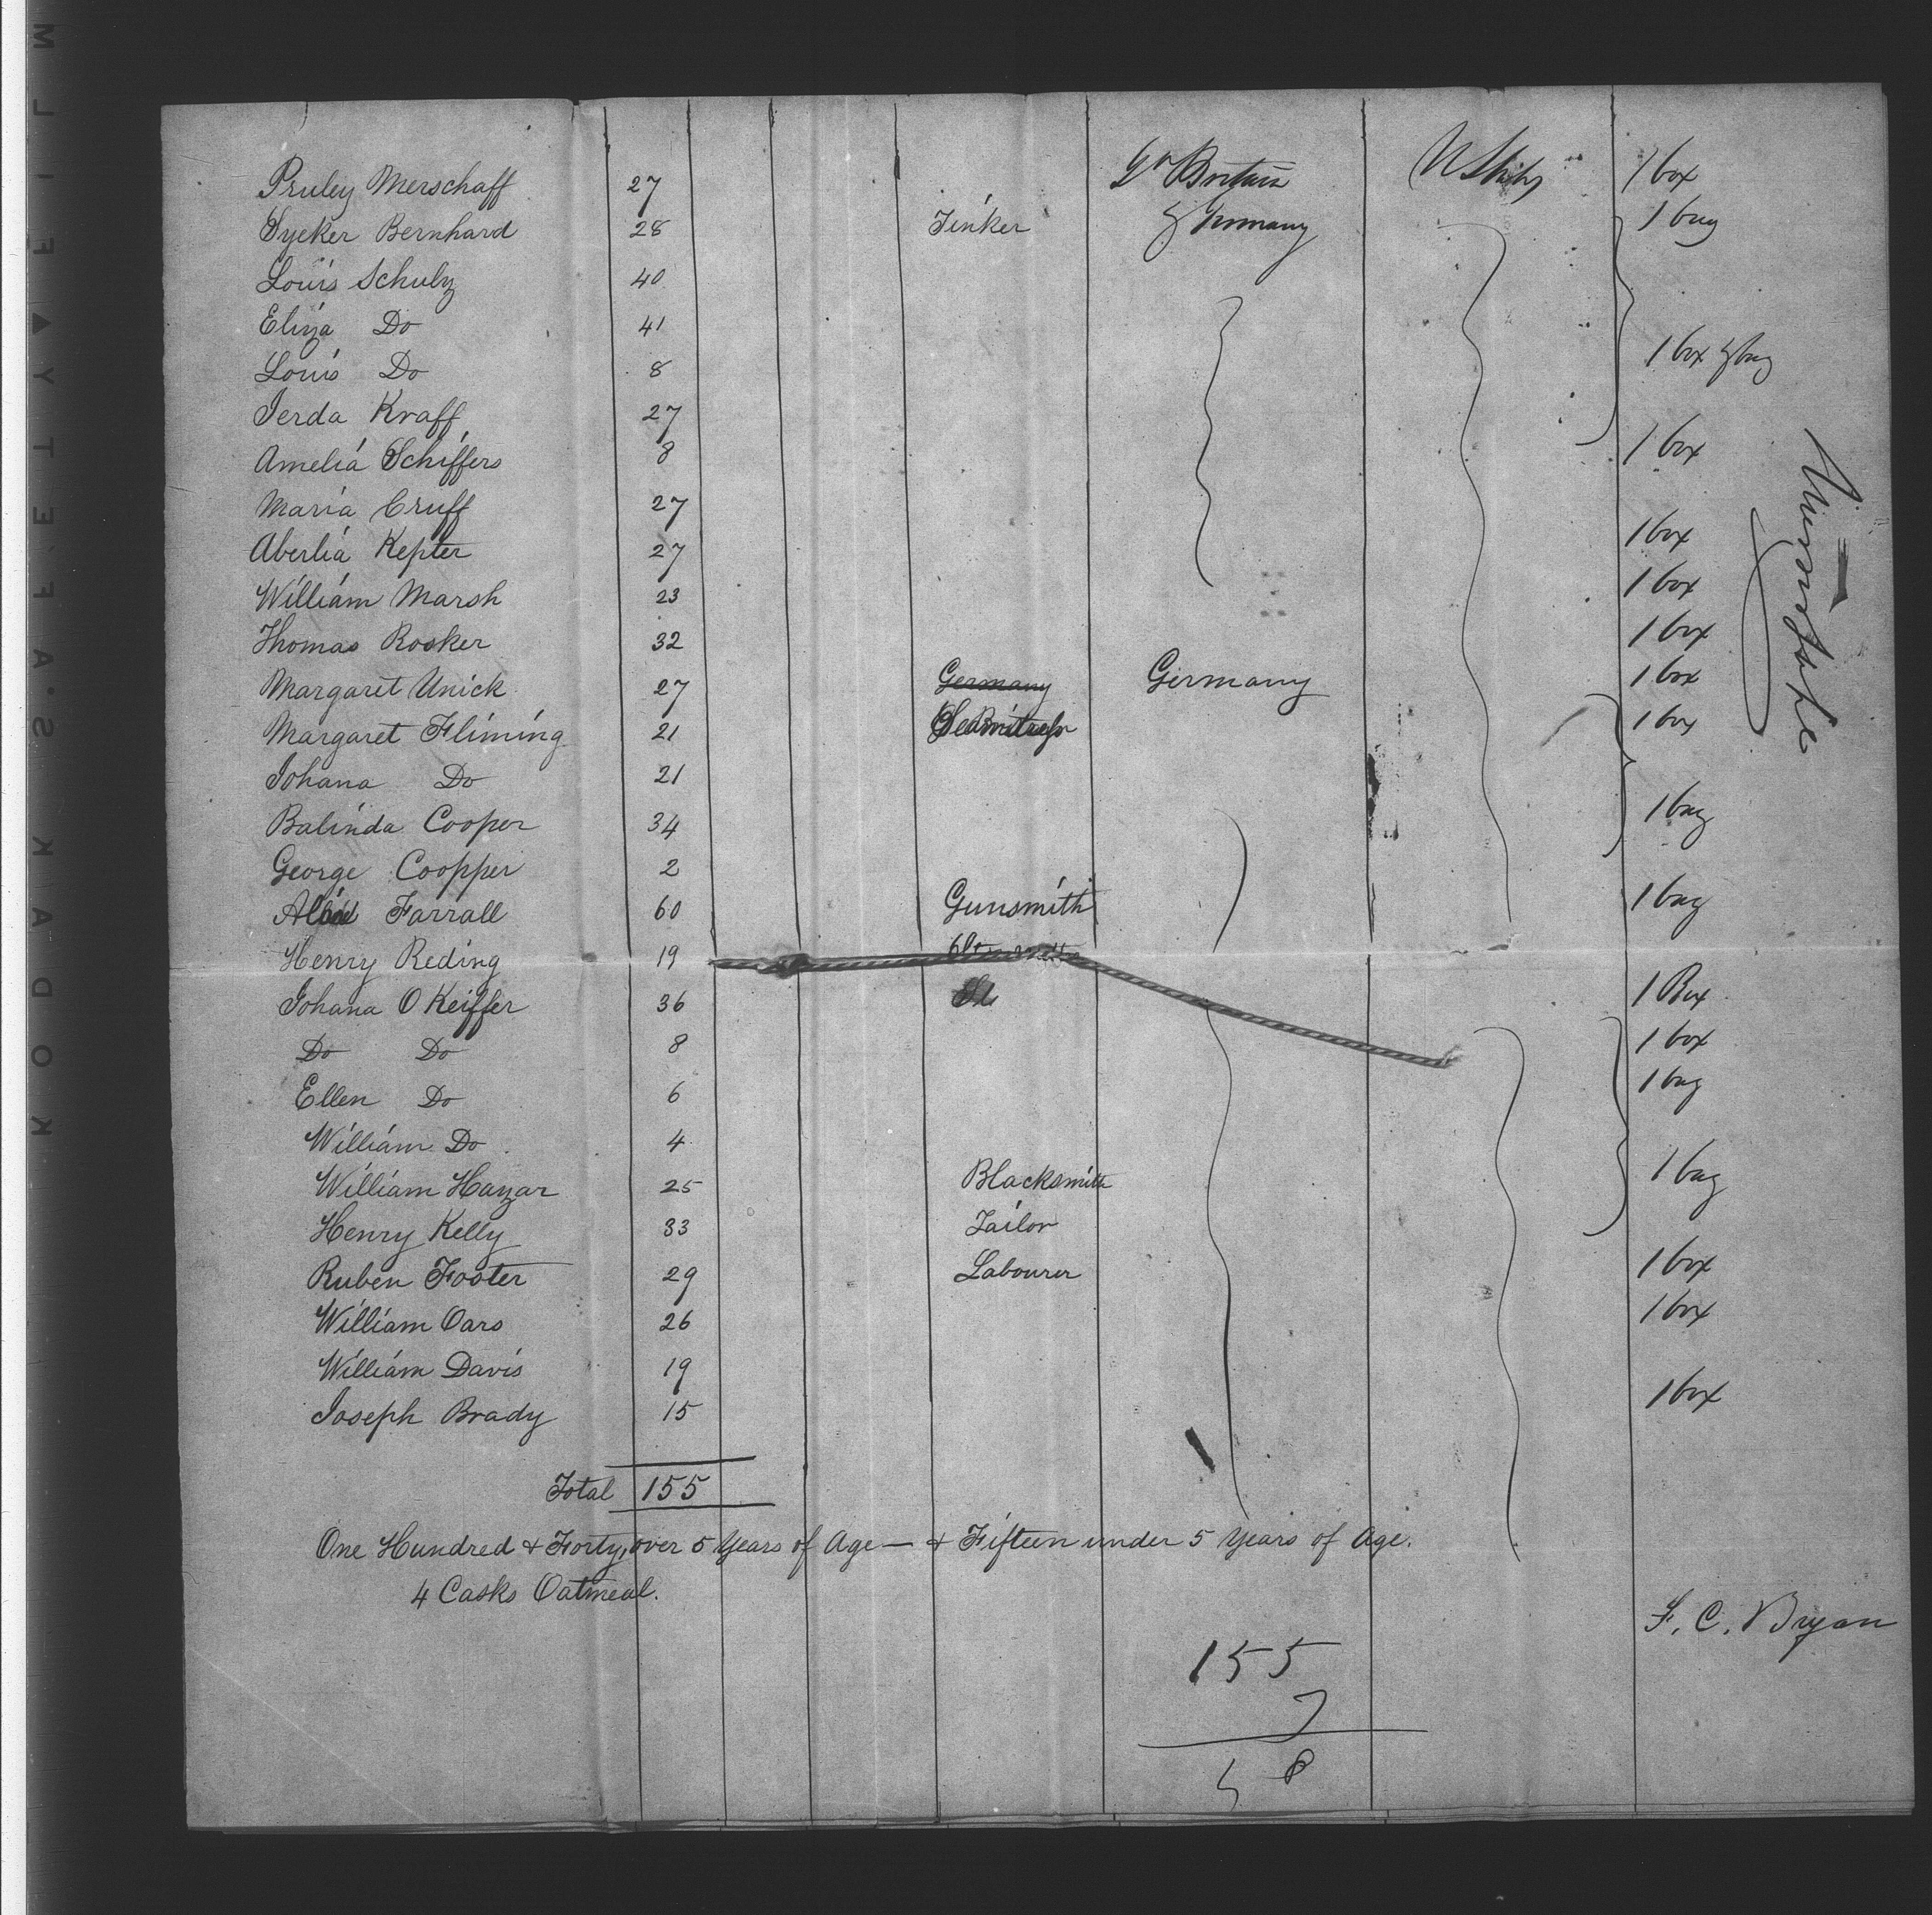 Pruley Merschaff 27 Gr Britain U States 1 box
Sycker Bernhard 28 Tinker Germany 1 bag
Louis Schulz 40
Eliza Do 41
Louis Do 8 1 box & bag
Jerda Kraff 27
Amelia Schiffers 8 1 box
Maria Cruff 27
Aberlia Kepter 27 1 box
William Marsh 23 1 box
Thomas Rosker 32 1 box
Margaret Unick 27 Germany Germany 1 box
Margaret Fliming 21 1 box
Johana Do 21
Balinda Cooper 34 1 bag
George Coopper 2
Farrall 60 Gunsmith 1 bag
Henry Reding 19
Johana O Keiffer 36 1 Box
Do Do 8 1 box
Ellen Do 6 1 bag
William Do 4
William Hazar 25 Blacksmith 1 bag
Henry Kelly 33 Tailor
Ruben Foster 29 Labourer 1 box
William Oars 26 1 box
William Davis 19
Joseph Brady 15 1 box
Total 155
One Hundred & Forty, over 5 Years of Age — & Fifteen under 5 Years of Age.
4 Casks Oatmeal.
F. C. Bryan
155
7
58
KODAK · SAFETY FILM